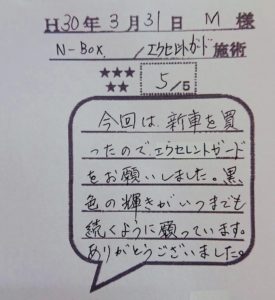 H30年3月31日 M 様
N-Box / エクセレントガード施術
★★★
★★
5/5
今回は、新車を買
ったので、エクセレントガード
をお願いしました。黒
色の輝きがいつまでも
続くように願っています。
ありがとうございました。